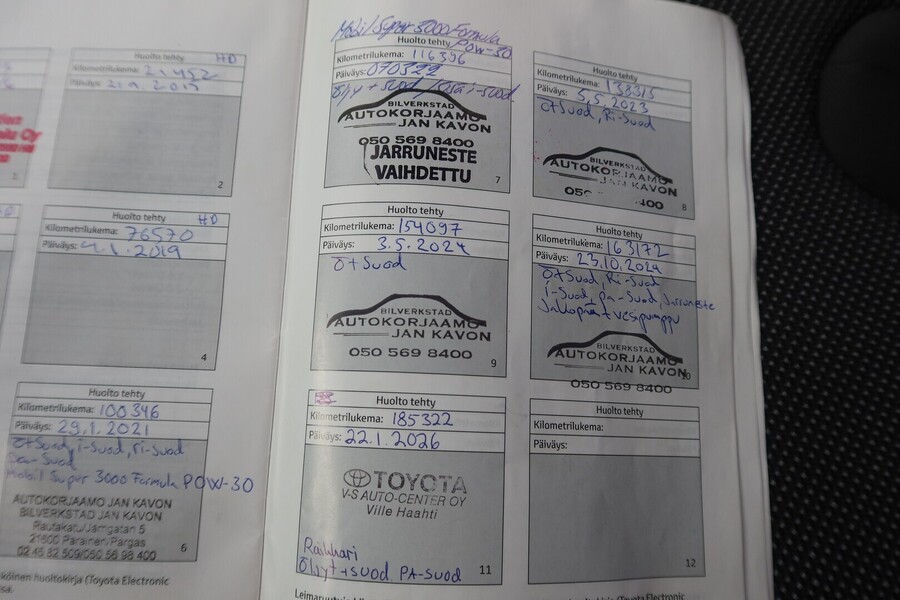 Huolto tehty HD
Kilometrilukema: 21452
Päiväys:
2
Huolto tehty HD
Kilometrilukema: 76570
Päiväys: 4.1.2019
4
Huolto tehty
Kilometrilukema: 100346
Päiväys: 29.1.2021
Ö+Suod, i-suod, ri-suod
Pa-Suod
Mobil Super 3000 Formula POW-30
AUTOKORJAAMO JAN KAVON
BILVERKSTAD JAN KAVON
Rautakatu/Järngatan 5
21600 Parainen/Pargas
02 45 82 509/050 56 98 400
6
Mobil Super 3000 Formula
Huolto tehty POW-30
Kilometrilukema: 116396
Päiväys: 070322
Öljy + suod, i-suod
BILVERKSTAD
AUTOKORJAAMO
JAN KAVON
050 569 8400
JARRUNESTE
VAIHDETTU
7
Huolto tehty
Kilometrilukema: 138315
Päiväys: 5.5.2023
Ö+Suod, Ri-Suod
BILVERKSTAD
AUTOKORJAAMO
JAN KAVON
8
Huolto tehty
Kilometrilukema: 154097
Päiväys: 3.5.2024
Ö+Suod
BILVERKSTAD
AUTOKORJAAMO
JAN KAVON
050 569 8400
9
Huolto tehty
Kilometrilukema: 163172
Päiväys: 23.10.2024
Ö+Suod, Ri-Suod
i-Suod, pa-Suod, Jarruneste
Jakopää+vesipumppu
BILVERKSTAD
AUTOKORJAAMO
JAN KAVON
050 569 8400
10
Huolto tehty
Kilometrilukema: 185322
Päiväys: 22.1.2026
TOYOTA
V-S AUTO-CENTER OY
Ville Haahti
Raikkari
Öljyt+suod. PA-suod
11
Huolto tehty
Kilometrilukema:
Päiväys:
12
(Toyota Electronic
(Toyota Electronic